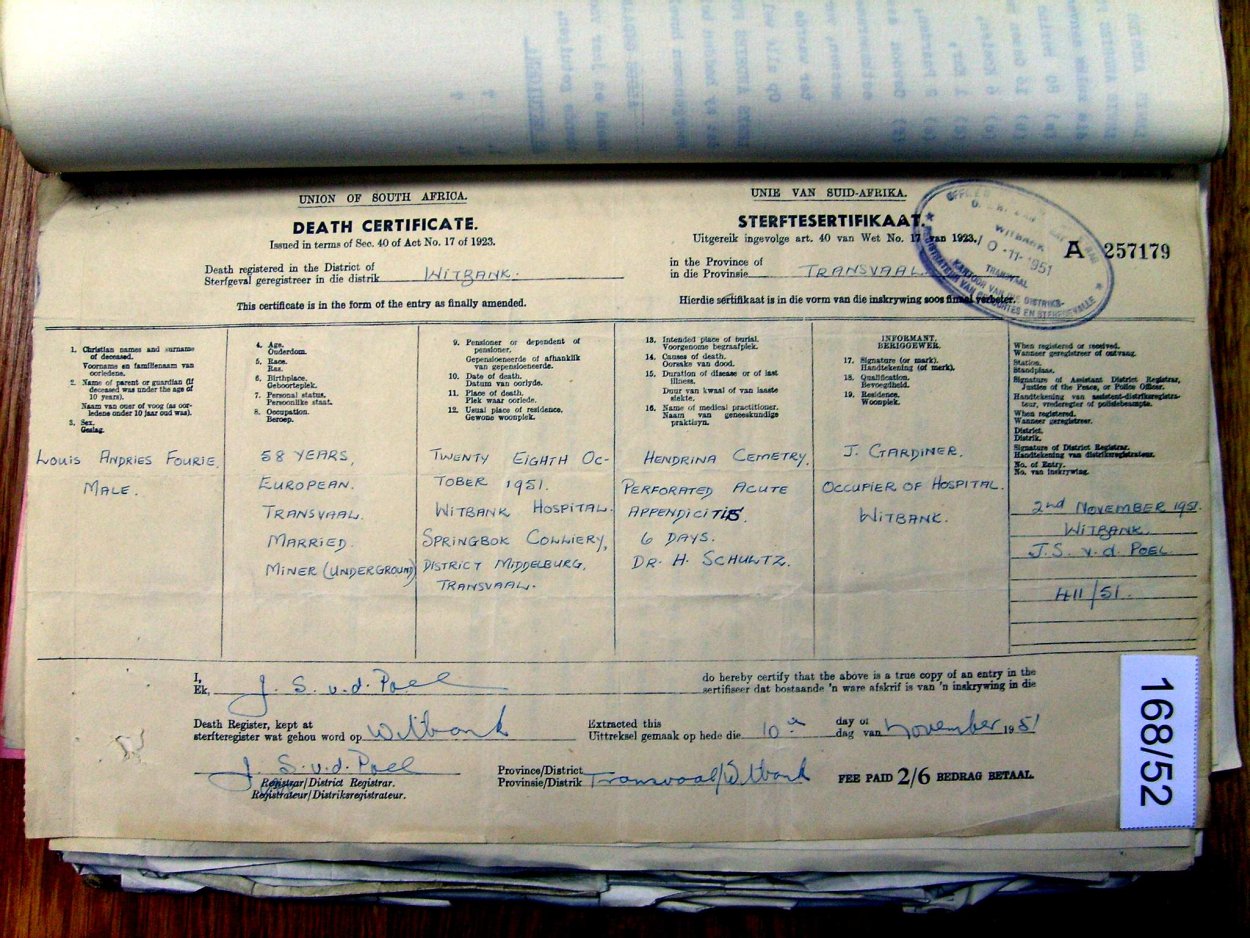 UNION OF SOUTH AFRICA.
DEATH CERTIFICATE.
Issued in terms of Sec. 40 of Act No. 17 of 1923.
UNIE VAN SUID-AFRIKA.
STERFTESERTIFIKAAT.
Uitgereik ingevolge art. 40 van Wet No. 17 van 1923.
WITBANK
10-11-1951
TRANSVAAL
KANTOOR VAN DIE DISTRIKS-
REGISTRATEUR VAN GEBOORTES EN STERFGEVALLE
A 257179
Death registered in the District of
Sterfgeval geregistreer in die distrik WITBANK.
in the Province of
in die Provinsie TRANSVAAL
This certificate is in the form of the entry as finally amended.
Hierdie sertifikaat is in die vorm van die inskrywing soos finaal verbeter.
1. Christian names and surname
of deceased.
Voorname en familienaam van
oorledene.
2. Name of parent or guardian (if
deceased was under the age of
10 years).
Naam van ouer of voog (as oor-
ledene onder 10 jaar oud was).
3. Sex.
Geslag.
LOUIS ANDRIES FOURIE.
MALE.
4. Age.
Ouderdom.
5. Race.
Ras.
6. Birthplace.
Geboorteplek.
7. Personal status.
Persoonlike staat.
8. Occupation.
Beroep.
58 YEARS,
EUROPEAN.
TRANSVAAL.
MARRIED.
MINER (UNDERGROUND)
9. Pensioner or dependent of
pensioner.
Gepensioeneerde of afhanklik
van gepensioeneerde.
10. Date of death.
Datum van oorlyde.
11. Place of death.
Plek waar oorlede.
12. Usual place of residence.
Gewone woonplek.
TWENTY EIGHTH OC-
TOBER 1951.
WITBANK HOSPITAL.
SPRINGBOK COLLIERY,
DISTRICT MIDDELBURG,
TRANSVAAL.
13. Intended place of burial.
Voorgenome begraafplek.
14. Causes of death.
Oorsake van dood.
15. Duration of disease or of last
illness.
Duur van kwaal of van laaste
siekte.
16. Name of medical practitioner.
Naam van geneeskundige
praktisyn.
HENDRINA CEMETRY.
PERFORATED ACUTE
APPENDICITIS.
6 DAYS.
DR. H. SCHULTZ.
INFORMANT.
BERIGGEWER.
17. Signature (or mark).
Handtekening (of merk).
18. Qualification.
Bevoegdheid.
19. Residence.
Woonplek.
J. GARDINER.
OCCUPIER OF HOSPITAL.
WITBANK.
When registered or received.
Wanneer geregistreer of ontvang.
Station.
Standplaas.
Signature of Assistant District Registrar,
Justice of the Peace, or Police Officer.
Handtekening van assistent-distriksregistra-
teur, vrederegter of polisiebeampte.
When registered.
Wanneer geregistreer.
District.
Distrik.
Signature of District Registrar.
Handtekening van distriksregistrateur.
No. of Entry.
No. van inskrywing.
2nd NOVEMBER 1951.
WITBANK.
J.S. v. d. POEL
411/51.
I,
Ek, J. S. v. d. Poel
do hereby certify that the above is a true copy of an entry in the
sertifiseer dat bostaande 'n ware afskrif is van 'n inskrywing in die
Death Register, kept at
sterfteregister wat gehou word op Witbank
Extracted this
Uittreksel gemaak op hede die 10
day of
dag van November 1951
J. S. v. d. Poel
Registrar/District Registrar.
Registrateur/Distriksregistrateur.
Province/District
Provinsie/Distrik Transvaal/Witbank
FEE PAID 2/6 BEDRAG BETAAL.
168/52